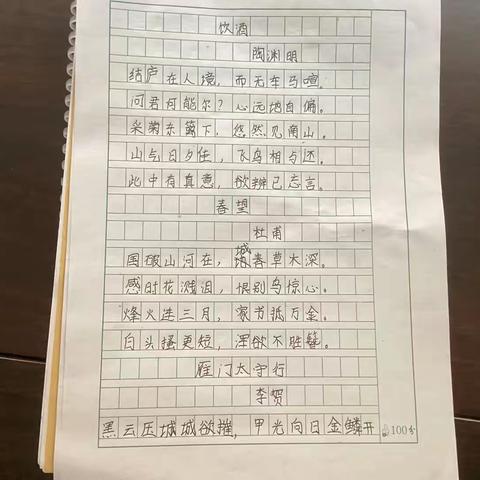 饮酒
陶渊明
结庐在人境，而无车马喧。
问君何能尔？心远地自偏。
采菊东篱下，悠然见南山。
山与日夕佳，飞鸟相与还。
此中有真意，欲辨已忘言。
春望
杜甫
国破山河在，城春草木深。
感时花溅泪，恨别鸟惊心。
烽火连三月，家书抵万金。
白头搔更短，浑欲不胜簪。
雁门太守行
李贺
黑云压城城欲摧，甲光向日金鳞开
100分